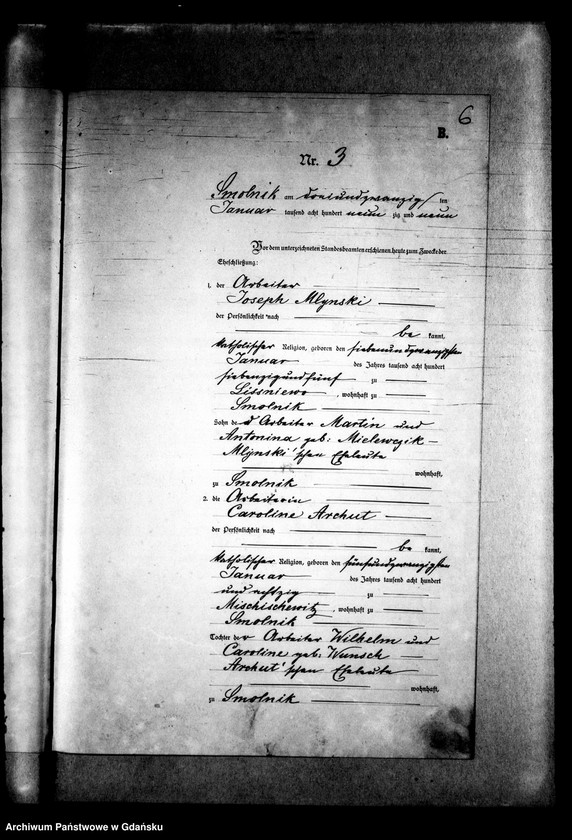 6
B.
Nr. 3
Smolnik am dreiundzwanzig ten
Januar tausend acht hundert neun zig und neun
Vor dem unterzeichneten Standesbeamten erschienen heute zum Zwecke der
Eheschließung:
1. der Arbeiter
Joseph Mlynski
der Persönlichkeit nach
be kannt,
katholischer Religion, geboren den siebenundzwanzigsten
Januar des Jahres tausend acht hundert
siebenzigundfünf zu
Lissniewo, wohnhaft zu
Smolnik
Sohn der Arbeiter Martin und
Antonina geb. Mielewczik
Mlynski'schen Eheleute
wohnhaft,
zu Smolnik
2. die Arbeiterin
Caroline Archut
der Persönlichkeit nach
be kannt,
katholischer Religion, geboren den fünfundzwanzigsten
Januar des Jahres tausend acht hundert
und achtzig zu
Mischischewitz, wohnhaft zu
Smolnik
Tochter der Arbeiter Wilhelm und
Caroline geb. Wunsch
Archut'schen Eheleute
wohnhaft,
zu Smolnik
Archiwum Państwowe w Gdańsku